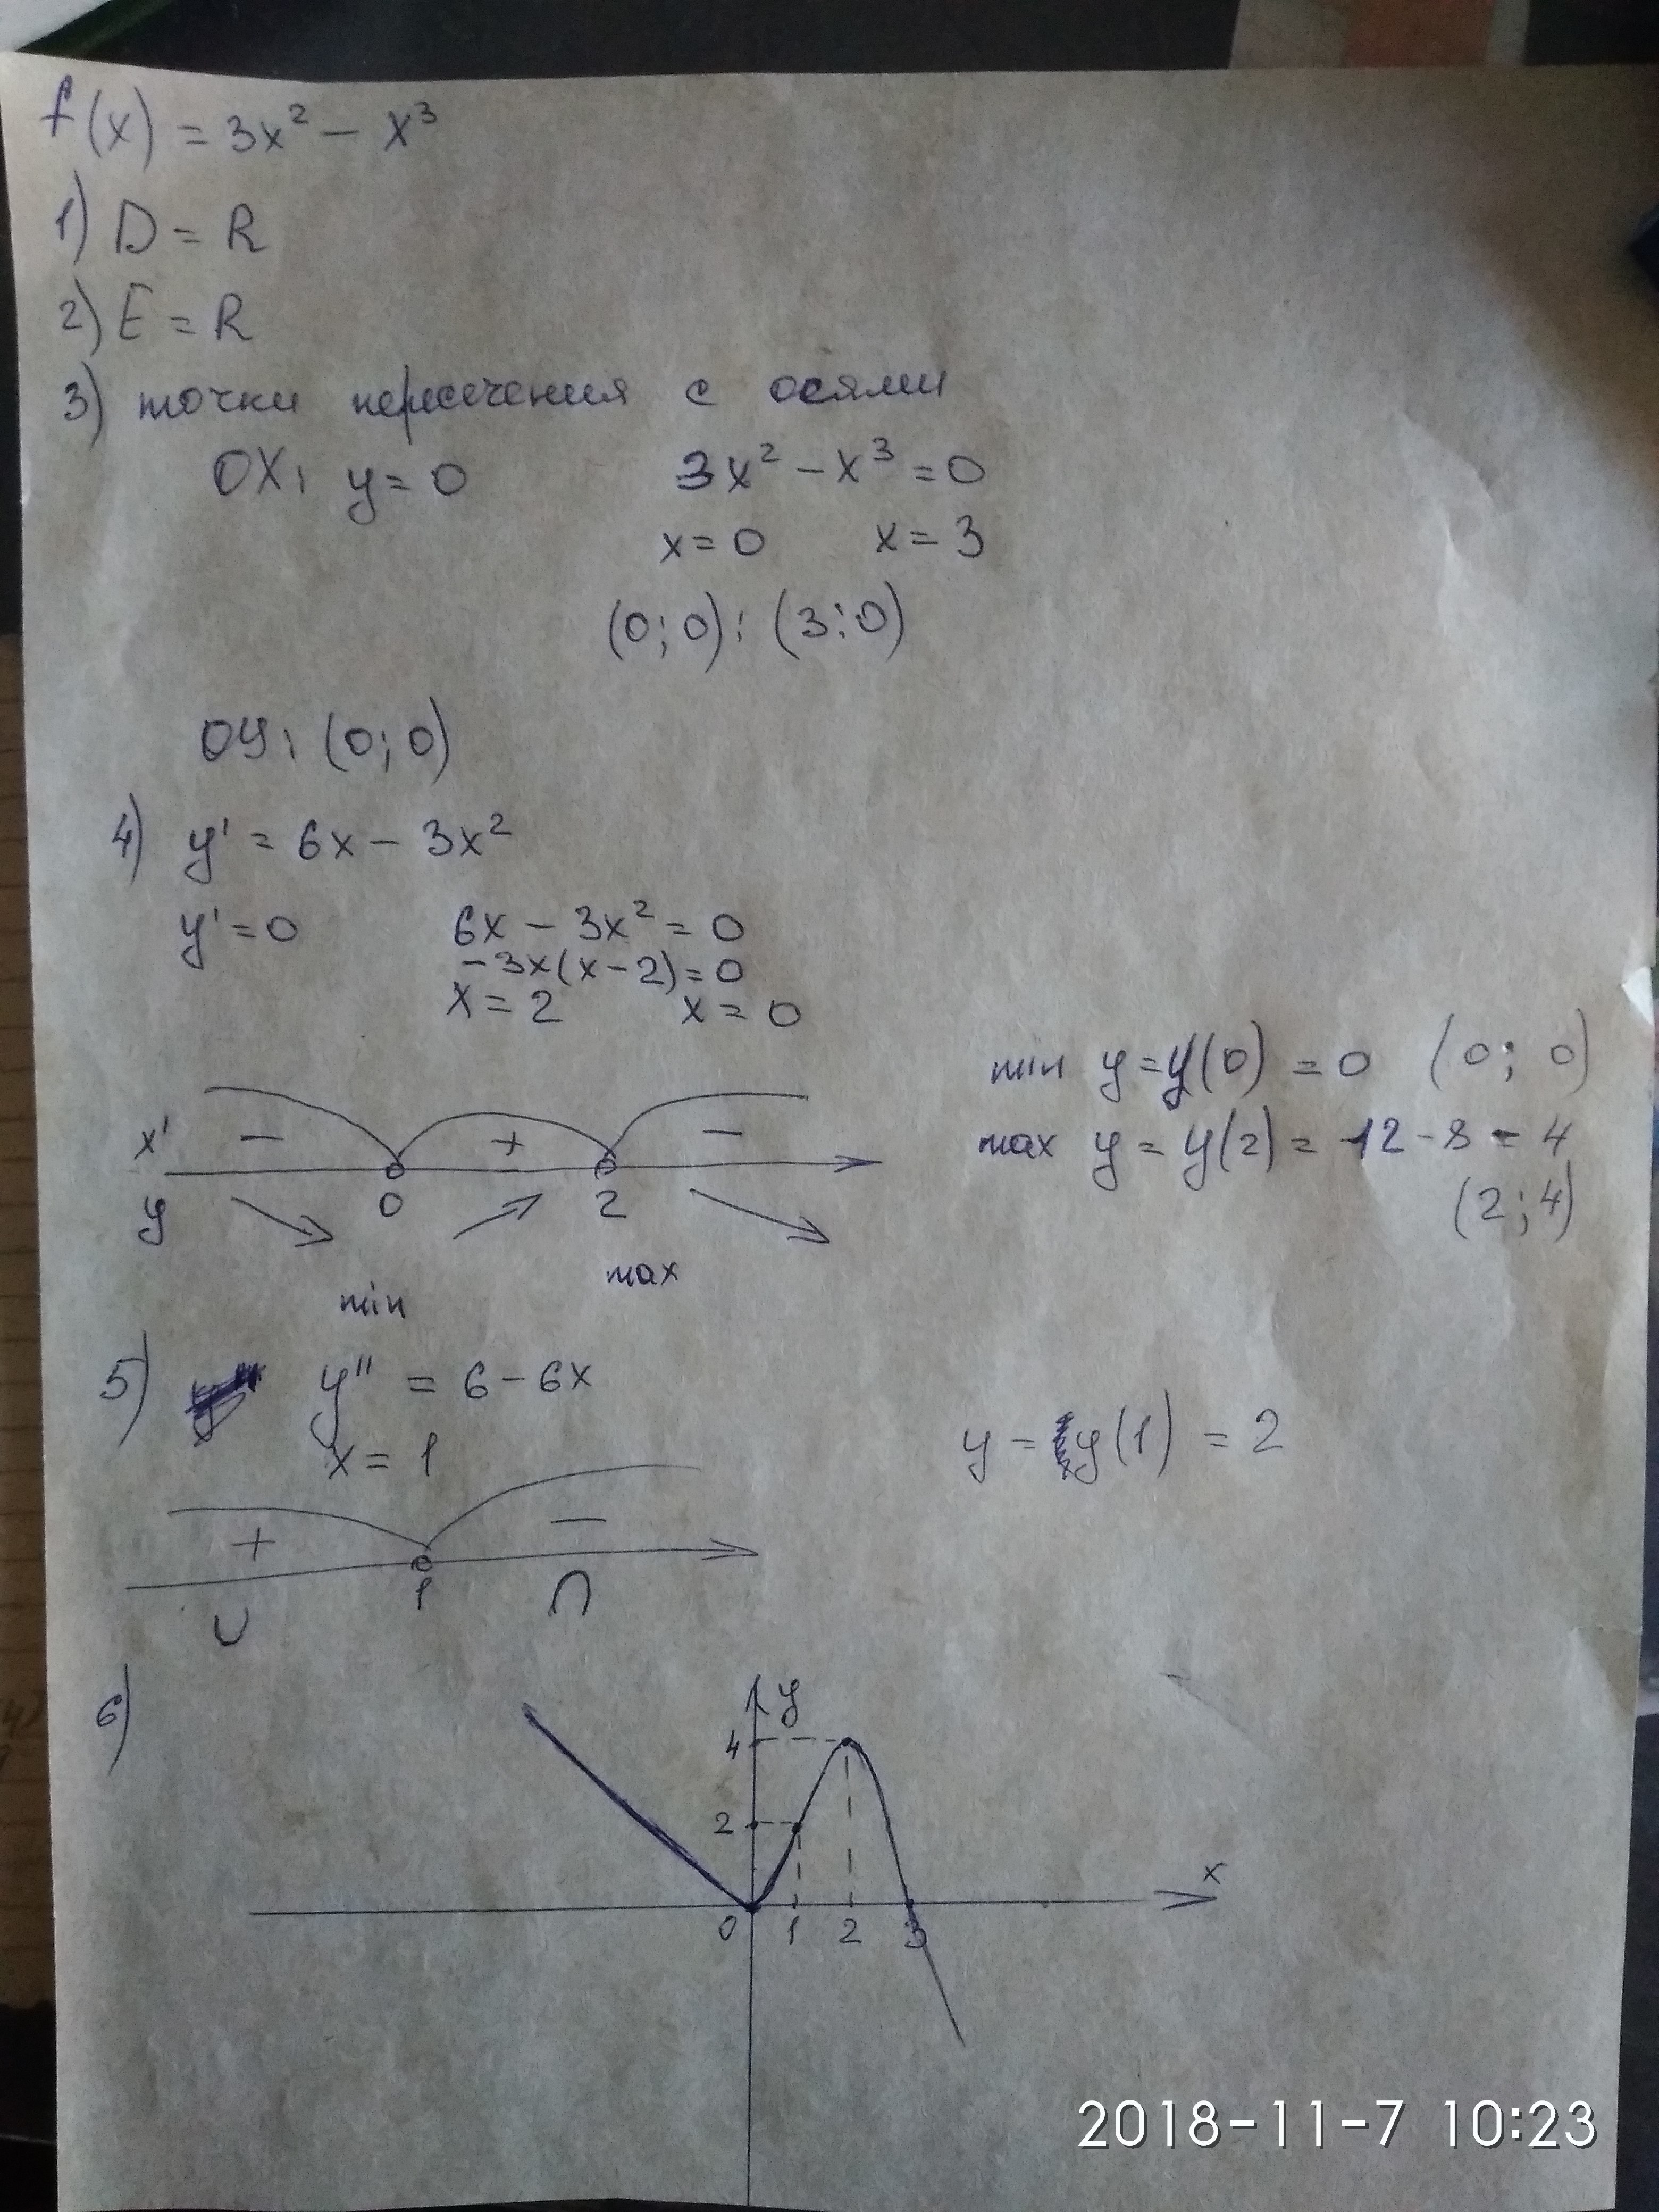 f(x) = 3x² - x³
1) D = R
2) E = R
3) точки пересечения с осями
OX: y = 0    3x² - x³ = 0
x = 0    x = 3
(0; 0); (3; 0)
OY: (0; 0)
4) y' = 6x - 3x²
y' = 0    6x - 3x² = 0
-3x(x - 2) = 0
x = 2    x = 0
min y = y(0) = 0 (0; 0)
max y = y(2) = 12 - 8 = 4
(2; 4)
x' - + -
y 0 2
min max
5) y'' = 6 - 6x
x = 1
y = y(1) = 2
+ -
1
∪ ∩
6)
y
4
2
x
0 1 2 3
2018-11-7 10:23